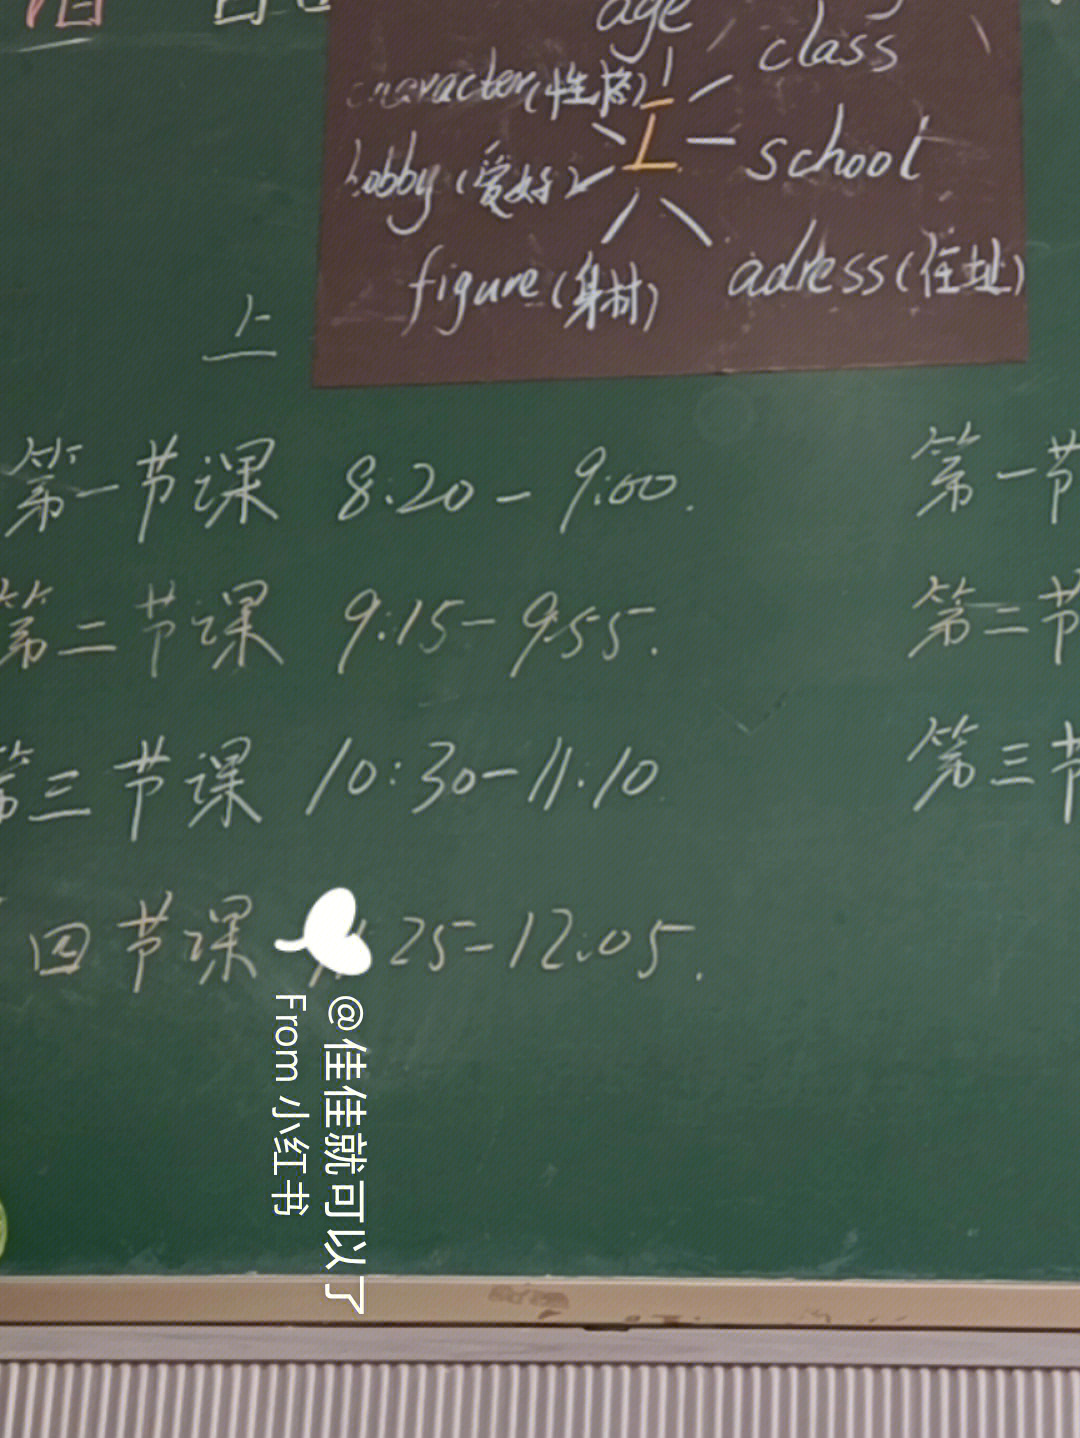 age
class
character(性格)
I
school
hobby(爱好)
figure(身材)
adress(住址)
上
第一节课 8:20-9:00.
第一节
第二节课 9:15-9:55.
第二节
第三节课 10:30-11:10
第三节
四节课 25-12:05.
@佳佳就可以了
From 小红书